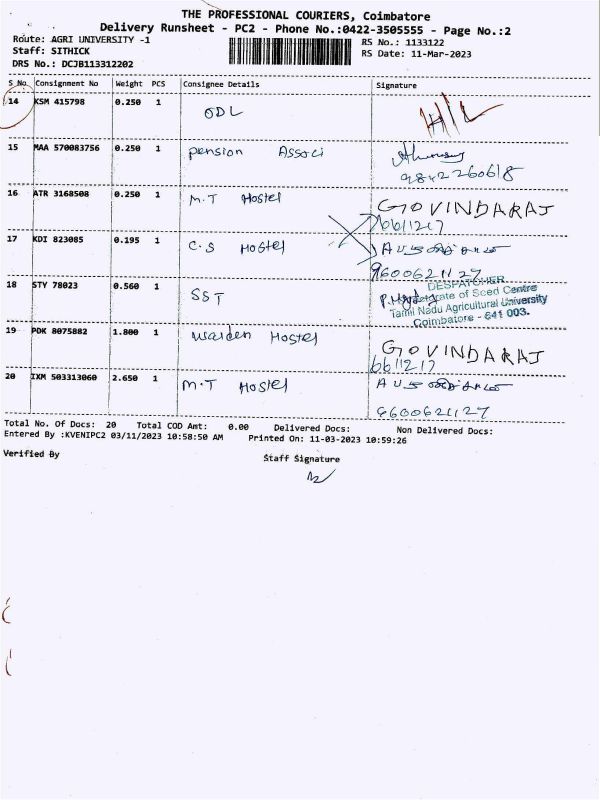 THE PROFESSIONAL COURIERS, Coimbatore
Delivery Runsheet - PC2 - Phone No.:0422-3505555 - Page No.:2
Route: AGRI UNIVERSITY -1
RS No.: 1133122
Staff: SITHICK
RS Date: 11-Mar-2023
DRS No.: DCJB113312202
S_No. Consignment No Weight PCS Consignee Details Signature
14 KSM 415798 0.250 1 ODL H/L
15 MAA 570083756 0.250 1 pension Associ
9842260618
16 ATR 3168508 0.250 1 M.T Hostel GOVINDARAJ
6611217
17 KDI 823085 0.195 1 C.S Hostel
9600621127
18 STY 78023 0.560 1 SST
DESPATCHER
Directorate of Seed Centre
Tamil Nadu Agricultural University
Coimbatore - 641 003.
19 PDK 8075882 1.800 1 Warden Hostel GOVINDARAJ
6611217
20 IXM 503313060 2.650 1 M.T Hostel
9600621127
Total No. Of Docs: 20 Total COD Amt: 0.00 Delivered Docs: Non Delivered Docs:
Entered By :KVENIPC2 03/11/2023 10:58:50 AM Printed On: 11-03-2023 10:59:26
Verified By
Staff Signature